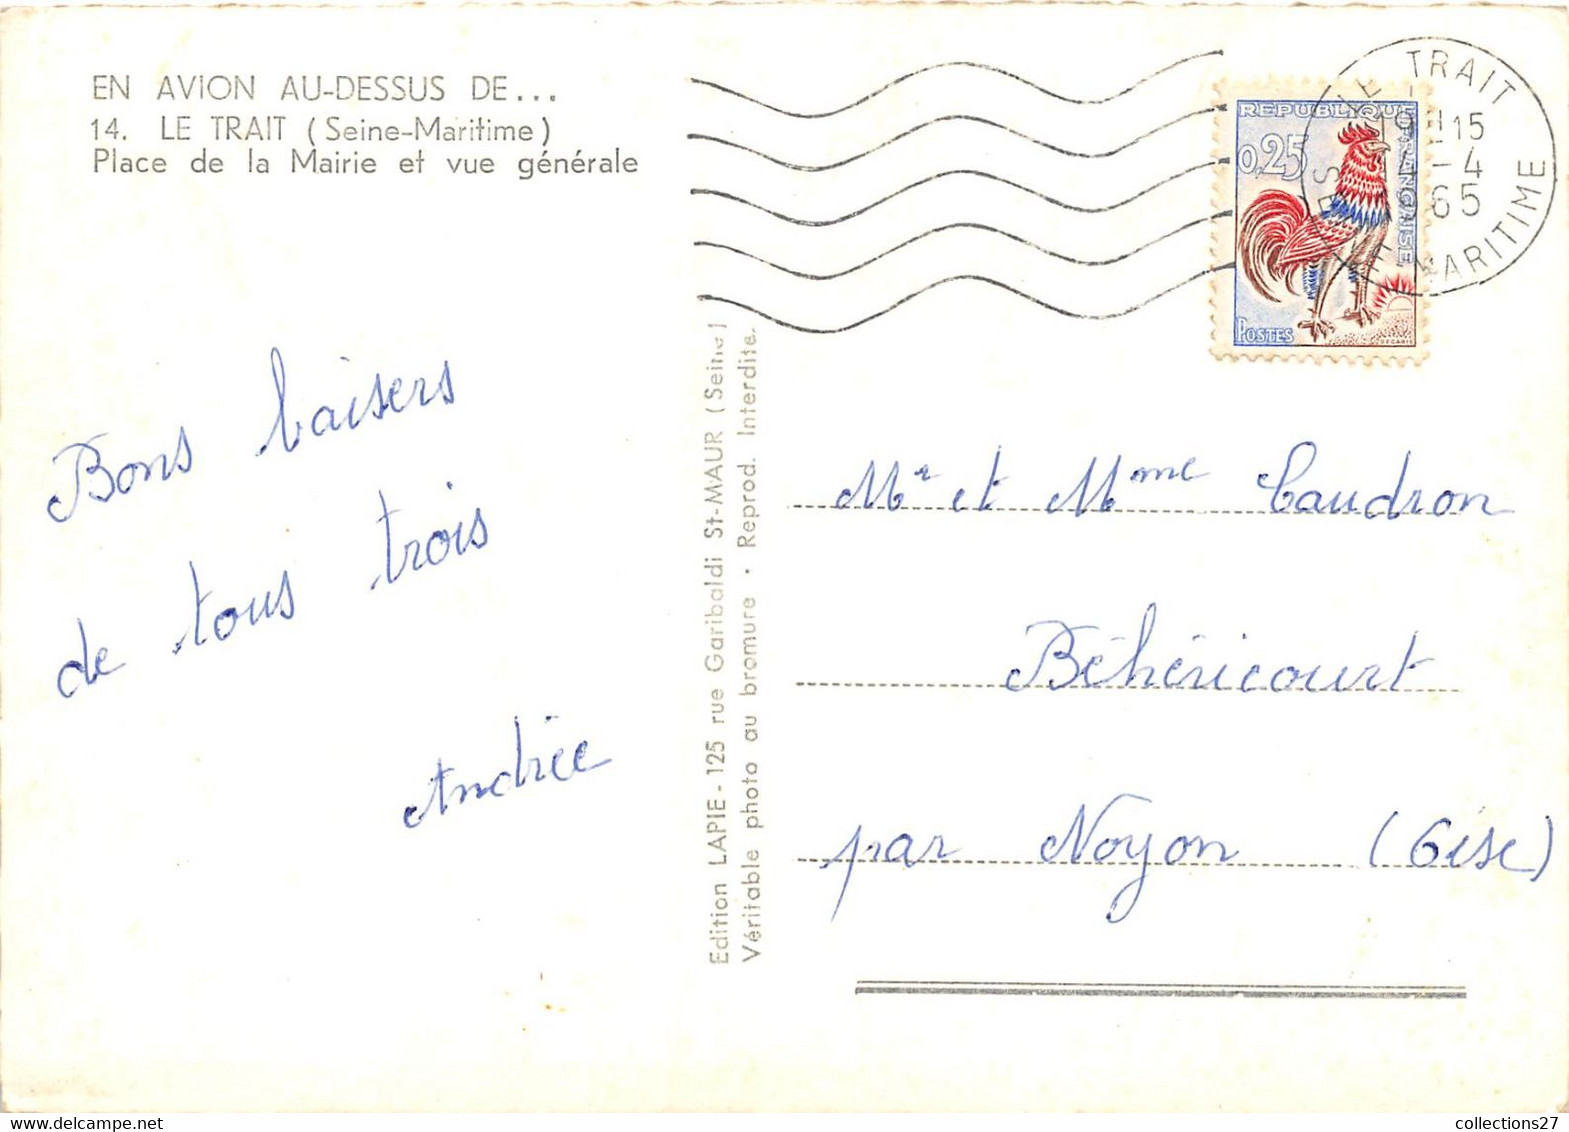 EN AVION AU-DESSUS DE...
14. LE TRAIT (Seine-Maritime)
Place de la Mairie et vue générale
LE TRAIT
15
14-4
1965
SEINE-MARITIME
REPUBLIQUE FRANÇAISE
0,25
POSTES
DECARIS
Bons baisers
de tous trois
Andrée
Edition LAPIE - 125 rue Garibaldi St-MAUR (Seine)
Véritable photo au bromure • Reprod. Interdite.
Mr et Mme Caudron
Béhéricourt
par Noyon (Oise)
collections27